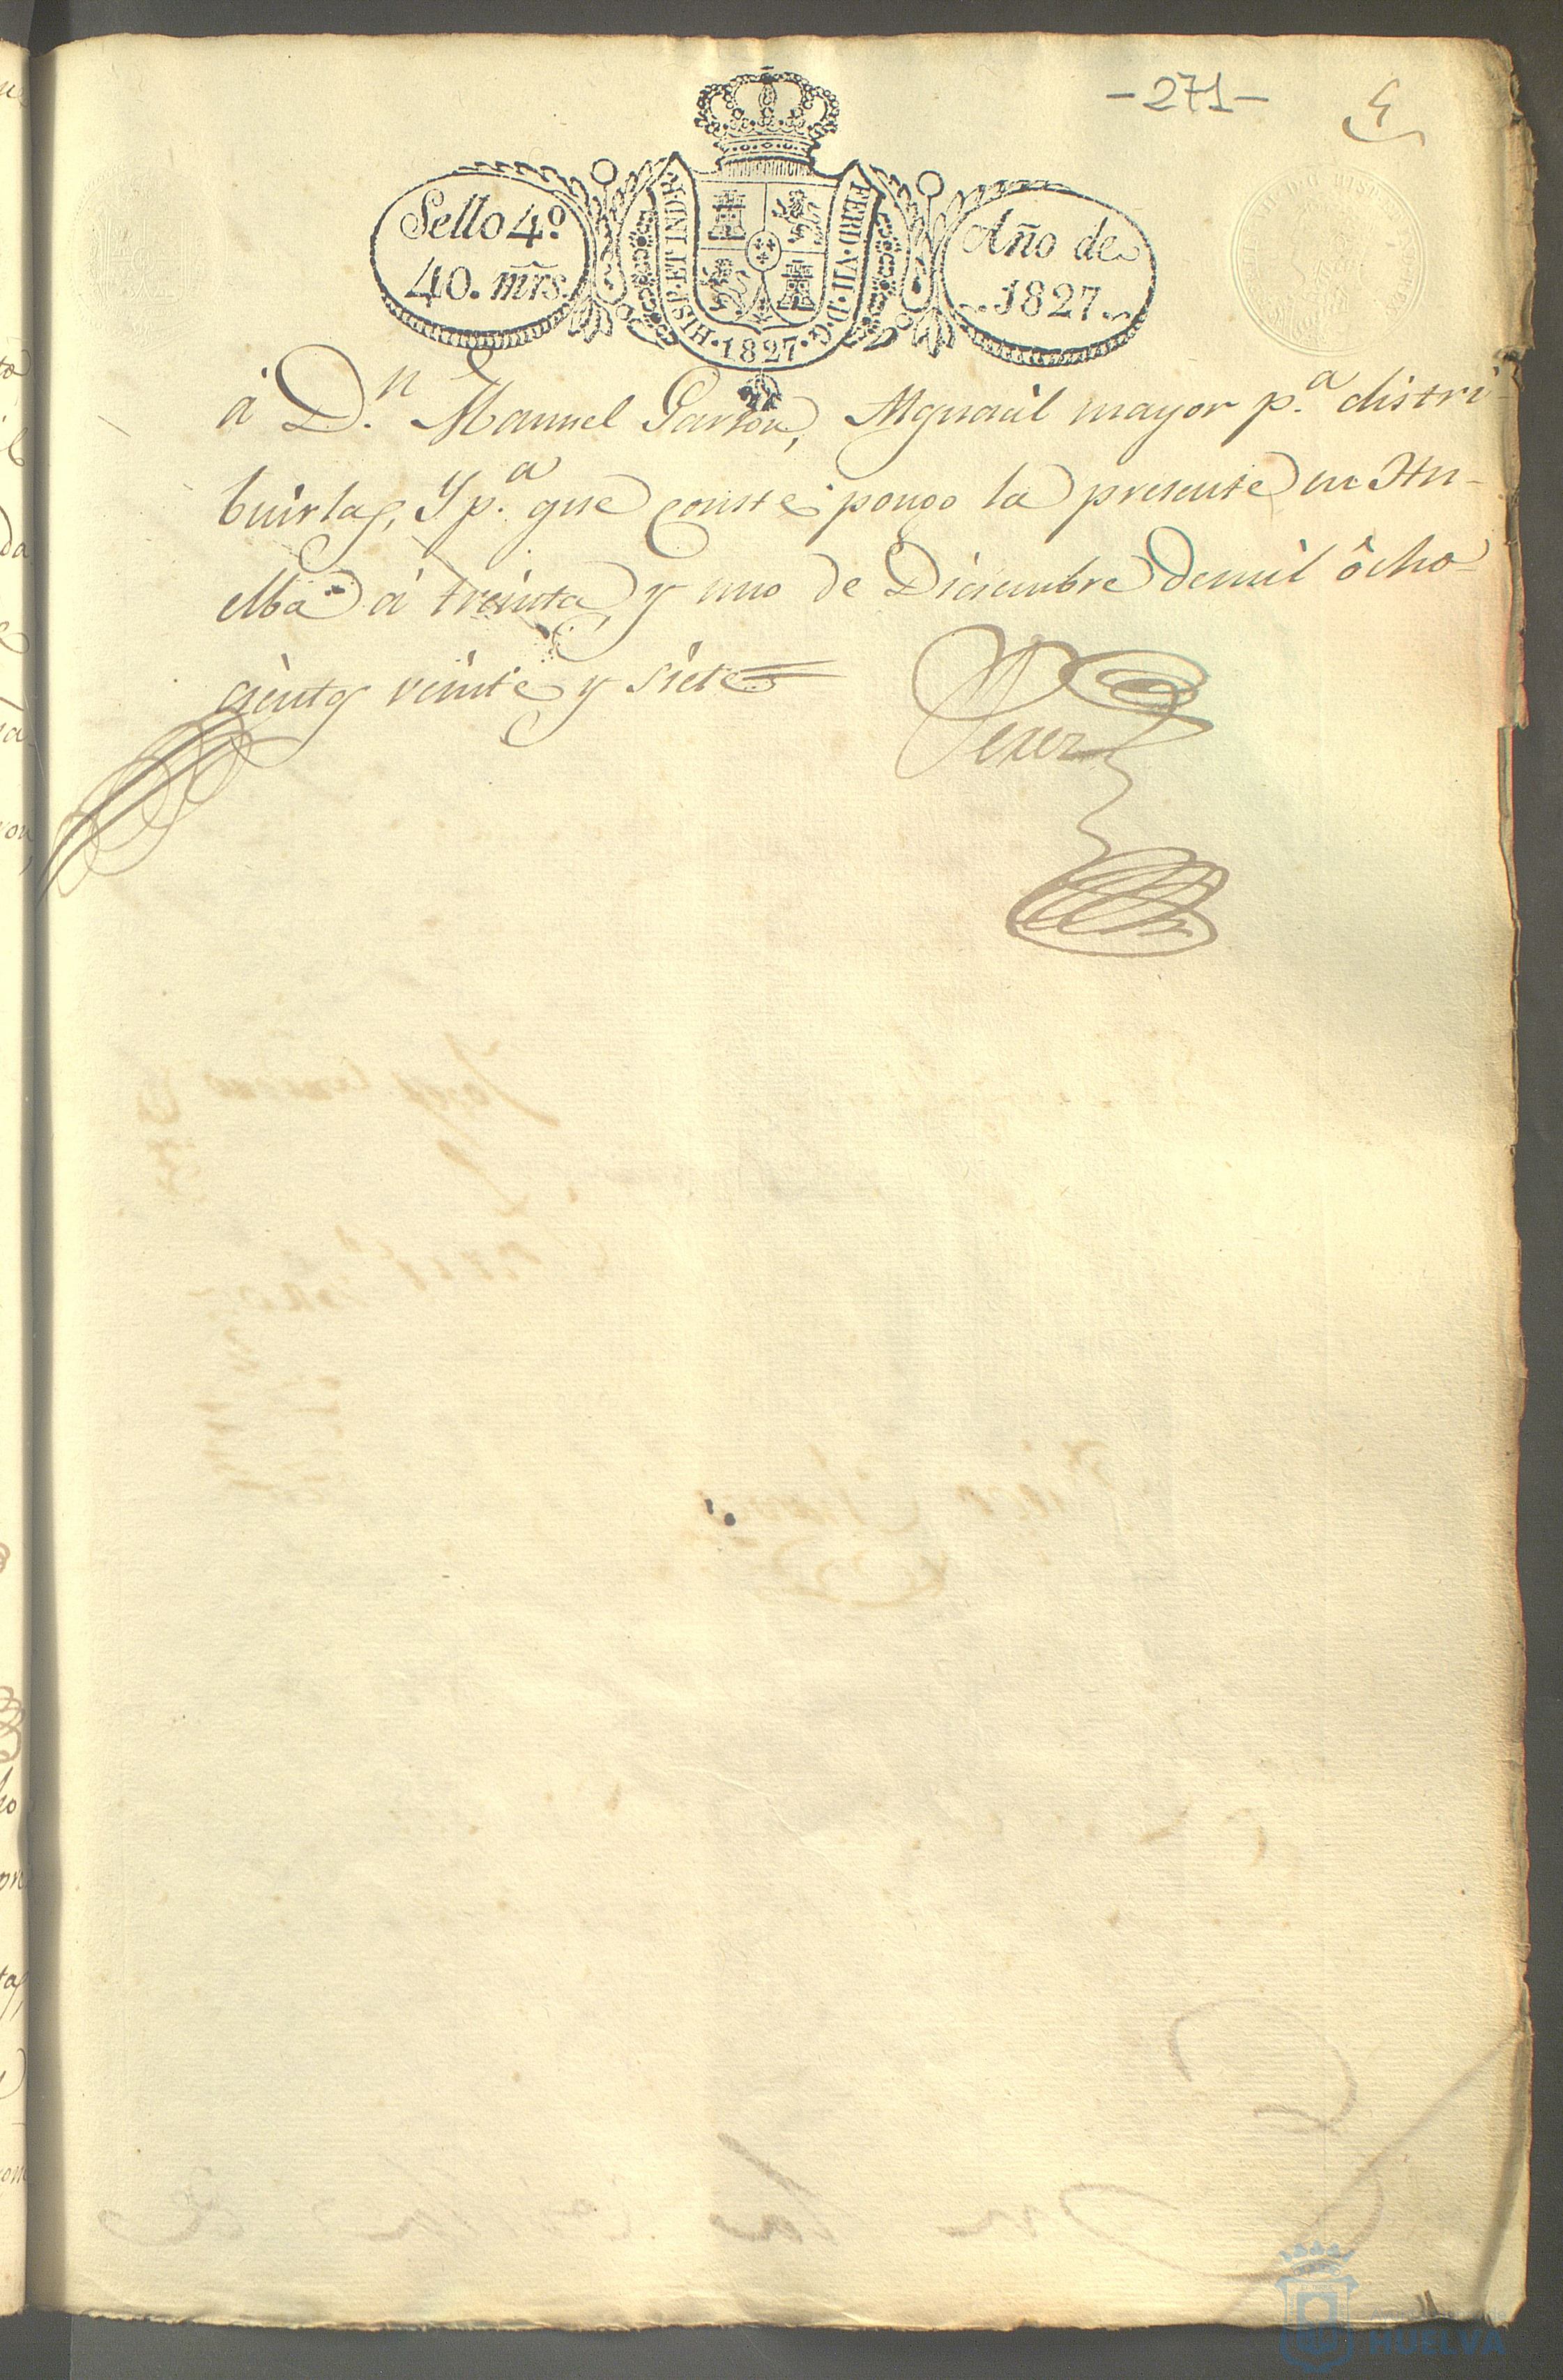 -271-
Sello 4º
40. mrs.
HISP. ET IND. R.
FERD. VII. D. G.
1827
Año de
1827
á D.n Manuel Garzon, Alguacil mayor p.a distri-
buirlas, Y p.a que conste pongo la presente en Hu-
elba á treinta, y uno de Diciembre de mil ôcho-
cientos veinte y siete
Perez
HUELVA